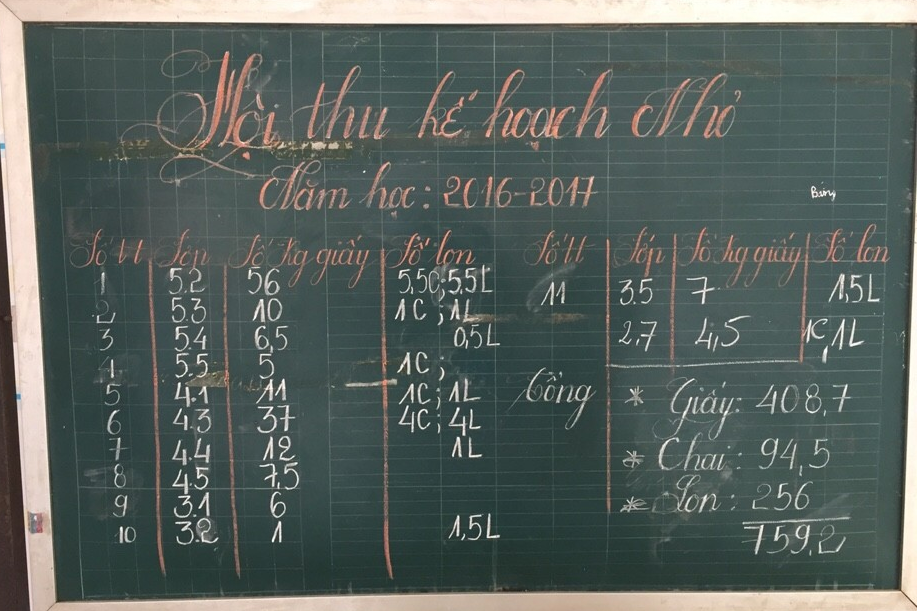 Mời thu kế hoạch Nhỏ
Năm học: 2016-2017
Bảng
Số tt Lớp Số Kg giấy Số lon
1 5.2 56 5,5C;5,5L
2 5.3 10 1C;1L
3 5.4 6,5 0,5L
4 5.5 5 1C;
5 4.1 11 1C;1L
6 4.3 37 4C;4L
7 4.4 12 1L
8 4.5 7,5
9 3.1 6
10 3.2 1 1,5L
Số tt Lớp Số Kg giấy Số lon
11 3.5 7 1,5L
2,7 4,5 1C,1L
Tổng * Giấy: 408,7
* Chai: 94,5
* Lon: 256
759,2